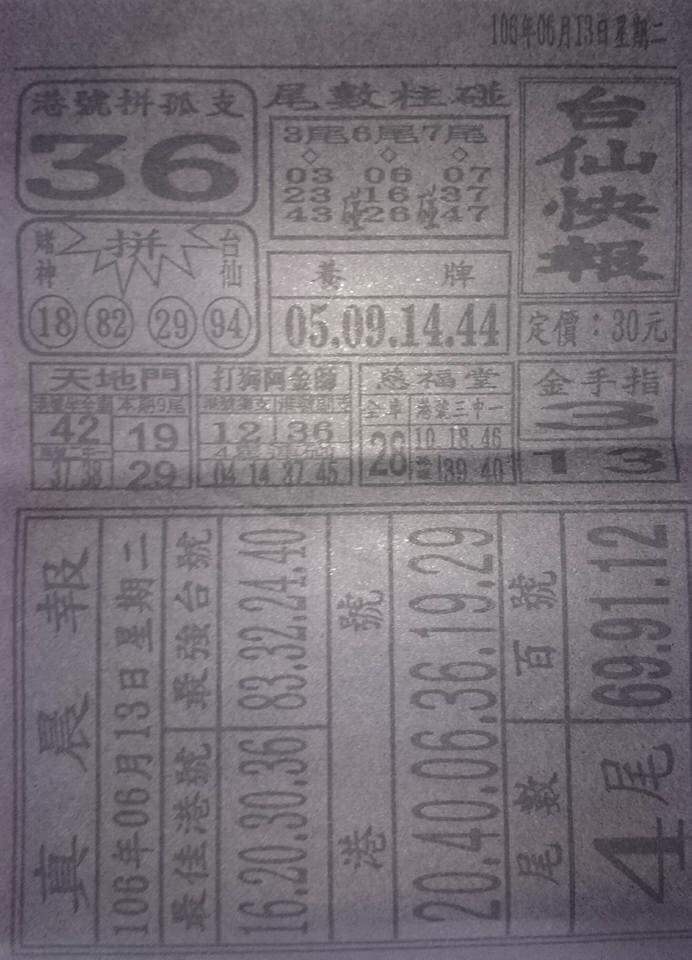 106年06月13日星期二
港號拼孤支
36
尾數柱碰
3尾6尾7尾
03 06 07
23碰16碰37
43 26 47
台仙快報
定價：30元
賭神 拼 台仙
18 82 29 94
養牌
05.09.14.44
天地門
本期9尾
42 19
37 38 29
打狗阿金師
12 36
04 14 37 45
慈福堂
全車 港號三中一
28
10.18.46
39 40
金手指
3
13
真晨報
106年06月13日星期二
最佳港號 最強台號
16.20.30.36 83.32.24.40
港號
20.40.06.36.19.29
尾數 百號
4尾 69.91.12